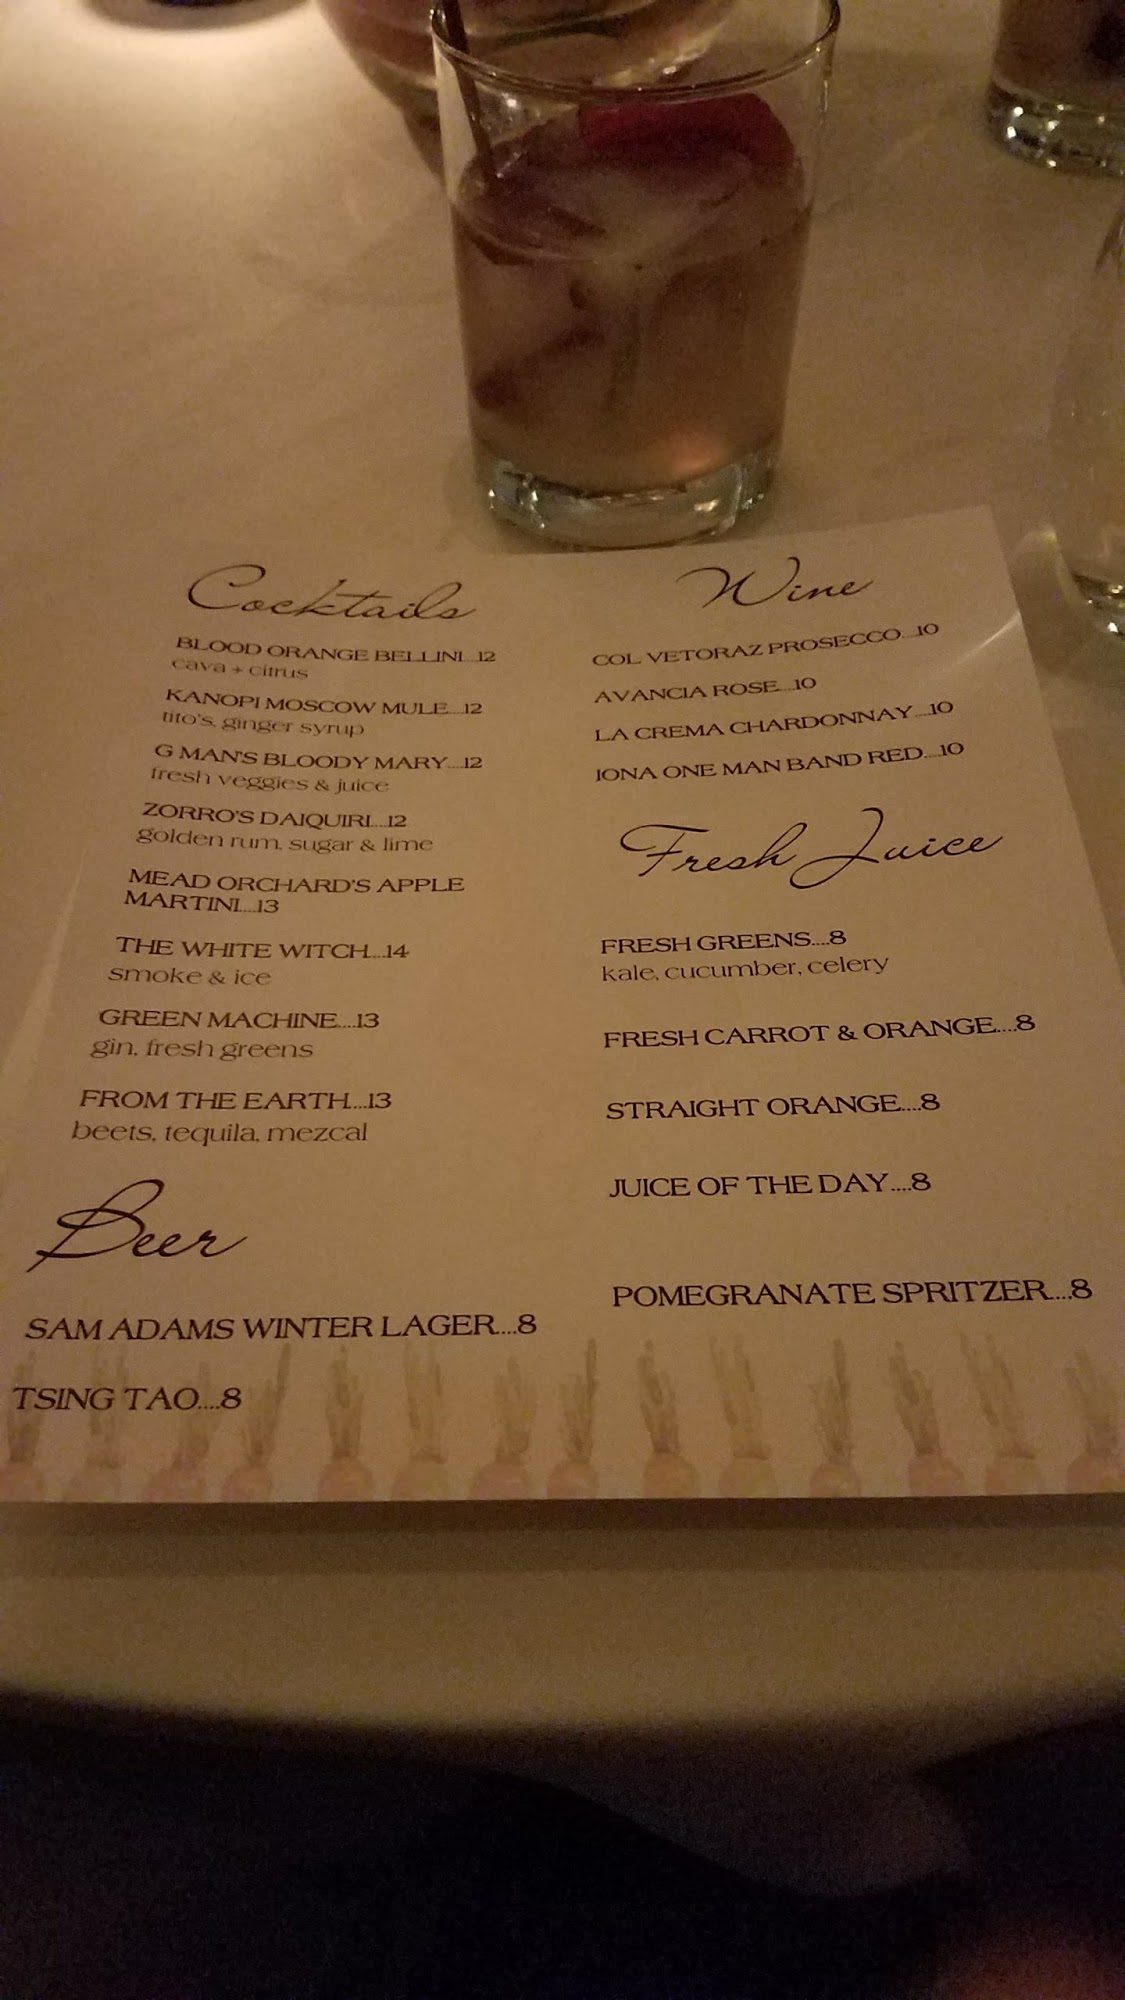 Cocktails
BLOOD ORANGE BELLINI...12
cava + citrus
KANOPI MOSCOW MULE....12
tito's, ginger syrup
G MAN'S BLOODY MARY....12
fresh veggies & juice
ZORRO'S DAIQUIRI....12
golden rum, sugar & lime
MEAD ORCHARD'S APPLE
MARTINI....13
THE WHITE WITCH....14
smoke & ice
GREEN MACHINE....13
gin, fresh greens
FROM THE EARTH....13
beets, tequila, mezcal
Beer
SAM ADAMS WINTER LAGER....8
TSING TAO....8
Wine
COL VETORAZ PROSECCO....10
AVANCIA ROSE....10
LA CREMA CHARDONNAY....10
IONA ONE MAN BAND RED....10
Fresh Juice
FRESH GREENS....8
kale, cucumber, celery
FRESH CARROT & ORANGE....8
STRAIGHT ORANGE....8
JUICE OF THE DAY....8
POMEGRANATE SPRITZER....8